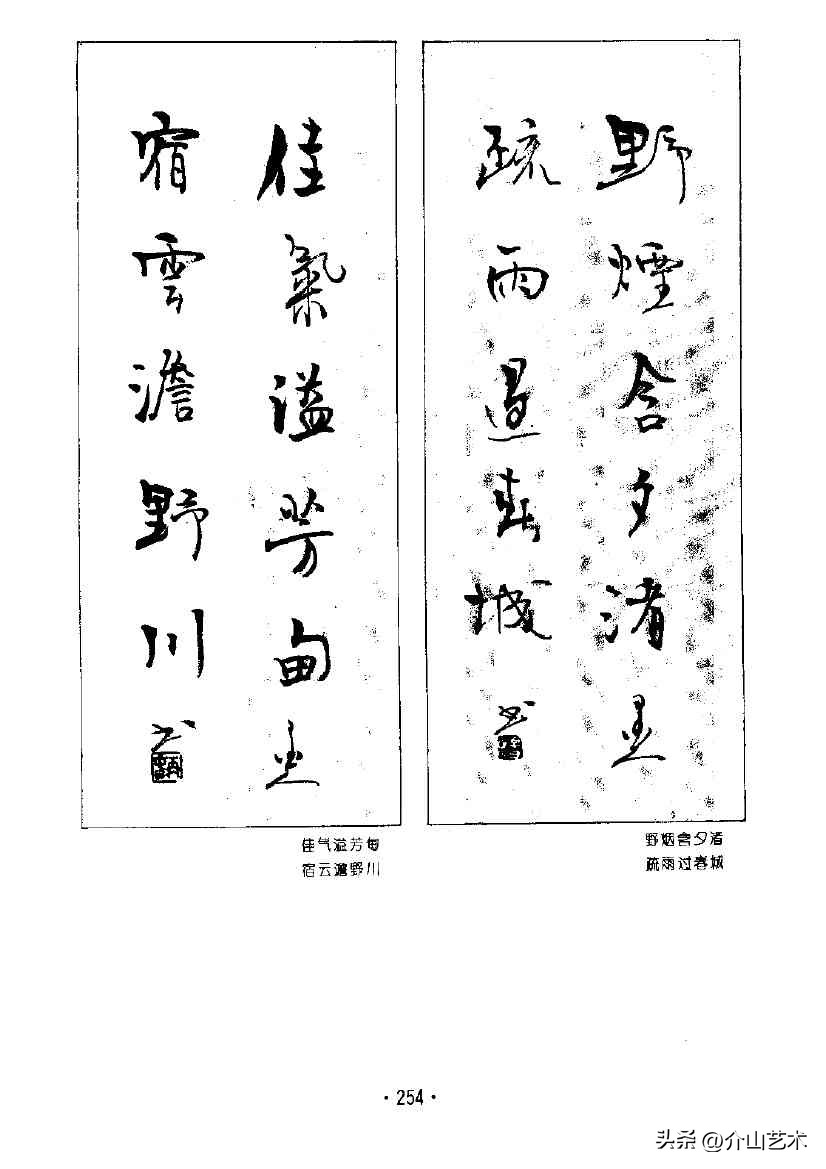 野煙含夕渚
疏雨過春城 书
佳氣溢芳甸
宿雲澹野川 书
野烟含夕渚
疏雨过春城
佳气溢芳甸
宿云澹野川
·254·
头条 @介山艺术